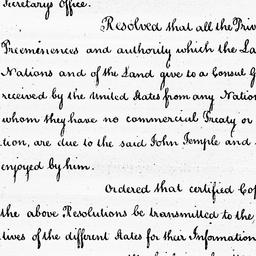 Secretarys Office.
Resolved that all the Priv
Preeminences and authority which the La
Nations and of the Land give to a Consul G
received by the United States from any Natio
whom they have no commercial Treaty or
tion, are due to the said John Temple and
enjoyed by him.
Ordered that certified Cop
the above Resolutions be transmitted to the
tives of the different States for their Information